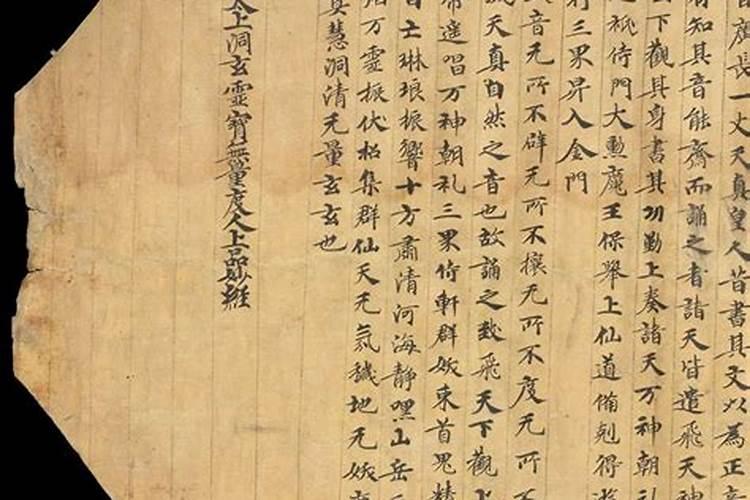 廣長一丈天真皇人昔書其文以為正音
有知其音能齋而誦之者諸天皆遣飛天神
下觀其身書其功勤上奏諸天万神朝礼
祇侍門大勳魔王保舉上仙道備剋得遊
行三界昇入金門
音无所不辟无所不攘无所不度无所不
成天真自然之音也故誦之致飛天下觀上
帝遥唱万神朝礼三界侍軒群妖束首鬼精
自亡琳琅振響十方肅清河海靜嘿山岳
万靈振伏招集群仙天无氛穢地无妖
冥慧洞清无量玄玄也
太上洞玄靈寶無量度人上品妙經